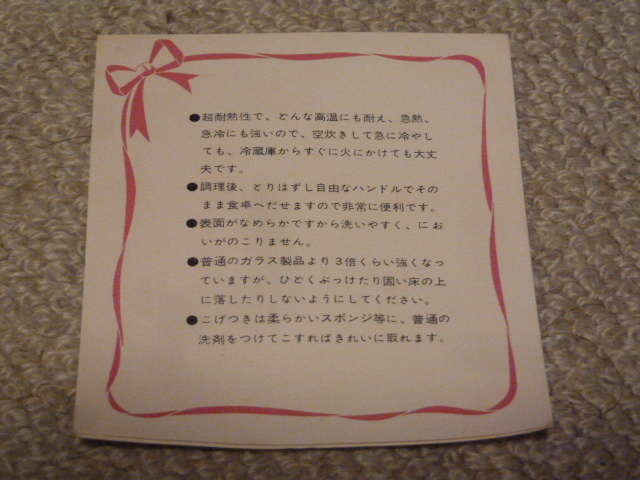 ●超耐熱性で、どんな高温にも耐え、急熱、
急冷にも強いので、空炊きして急に冷やし
ても、冷蔵庫からすぐに火にかけても大丈
夫です。
●調理後、とりはずし自由なハンドルでその
まま食卓へだせますので非常に便利です。
●表面がなめらかですから洗いやすく、にお
いがのこりません。
●普通のガラス製品より3倍くらい強くなっ
ていますが、ひどくぶっけたり固い床の上
に落したりしないようにしてください。
●こげつきは柔らかいスポンジ等に、普通の
洗剤をつけてこすればきれいに取れます。